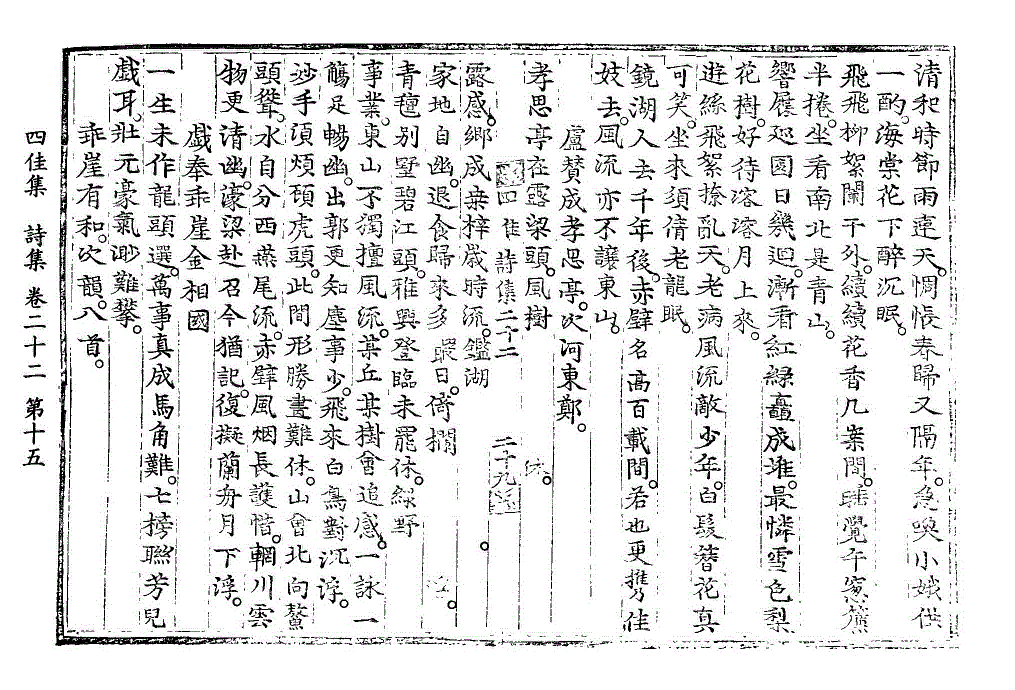 清和時節雨連天。惆悵春歸又隔年。急喚小娥供
一酌。海棠花下醉沉眠。
飛飛柳絮闌干外。續續花香几案間。睡覺午窓簾
半捲。坐看南北是青山。
響屧巡園日幾迴。漸看紅綠矗成堆。最憐雪色梨
花樹。好待溶溶月上來。
遊絲飛絮撩亂天。老病風流敵少年。白髮簪花真
可笑。坐來須倩老龍眠。
鏡湖人去千年後。赤壁名高百載間。若也更携佳
妓去。風流亦不讓東山。
盧贊成孝思亭。次河東鄭。
孝思亭在露梁頭。風樹
四佳詩集二十二 二十九 休。
露感。鄉成桒梓歲時流。鑑湖
家地自幽。退食歸來多暇日。倚搁 浮。
青氊別墅碧江頭。雅興登臨未罷休。綠野
事業。東山不獨擅風流。某丘某樹會追感。一詠一
觴足暢幽。出郭更知塵事少。飛來白鳥對沉浮。
妙手湏煩頋虎頭。此間形勝畫難休。山會北向鰲
頭聳。水自分西燕尾流。赤壁風烟長護惜。輞川雲
物更清幽。濠梁赴召今猶記。復擬蘭舟月下浮。
戲奉乖崖金相國
一生未作龍頭選。萬事真成馬角難。七榜聯芳兒
戲耳。壯元豪氣渺難攀。
乖崖有和。次韻。八首。
四佳集 詩集 卷二十二 第十五